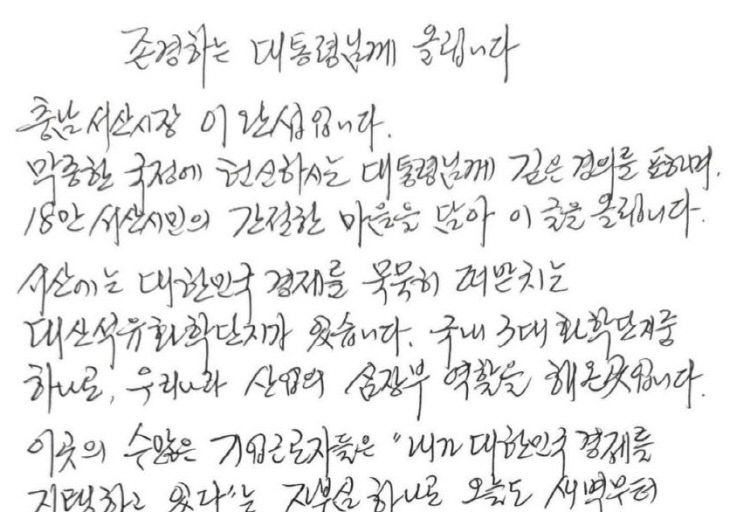 존경하는 대통령님께 올립니다
충남 서산시장 이완섭입니다.
막중한 국정에 헌신하시는 대통령님께 깊은 경의를 표하며,
18만 서산시민의 간절한 마음을 담아 이 글을 올립니다.
서산에는 대한민국 경제를 묵묵히 떠받치는
대산석유화학단지가 있습니다. 국내 3대 화학단지중
하나로, 우리나라 산업의 심장부 역할을 해온 곳입니다.
이곳의 수많은 기업근로자들은 "내가 대한민국 경제를
지탱하고 있다"는 자부심 하나로 오늘도 새벽부터